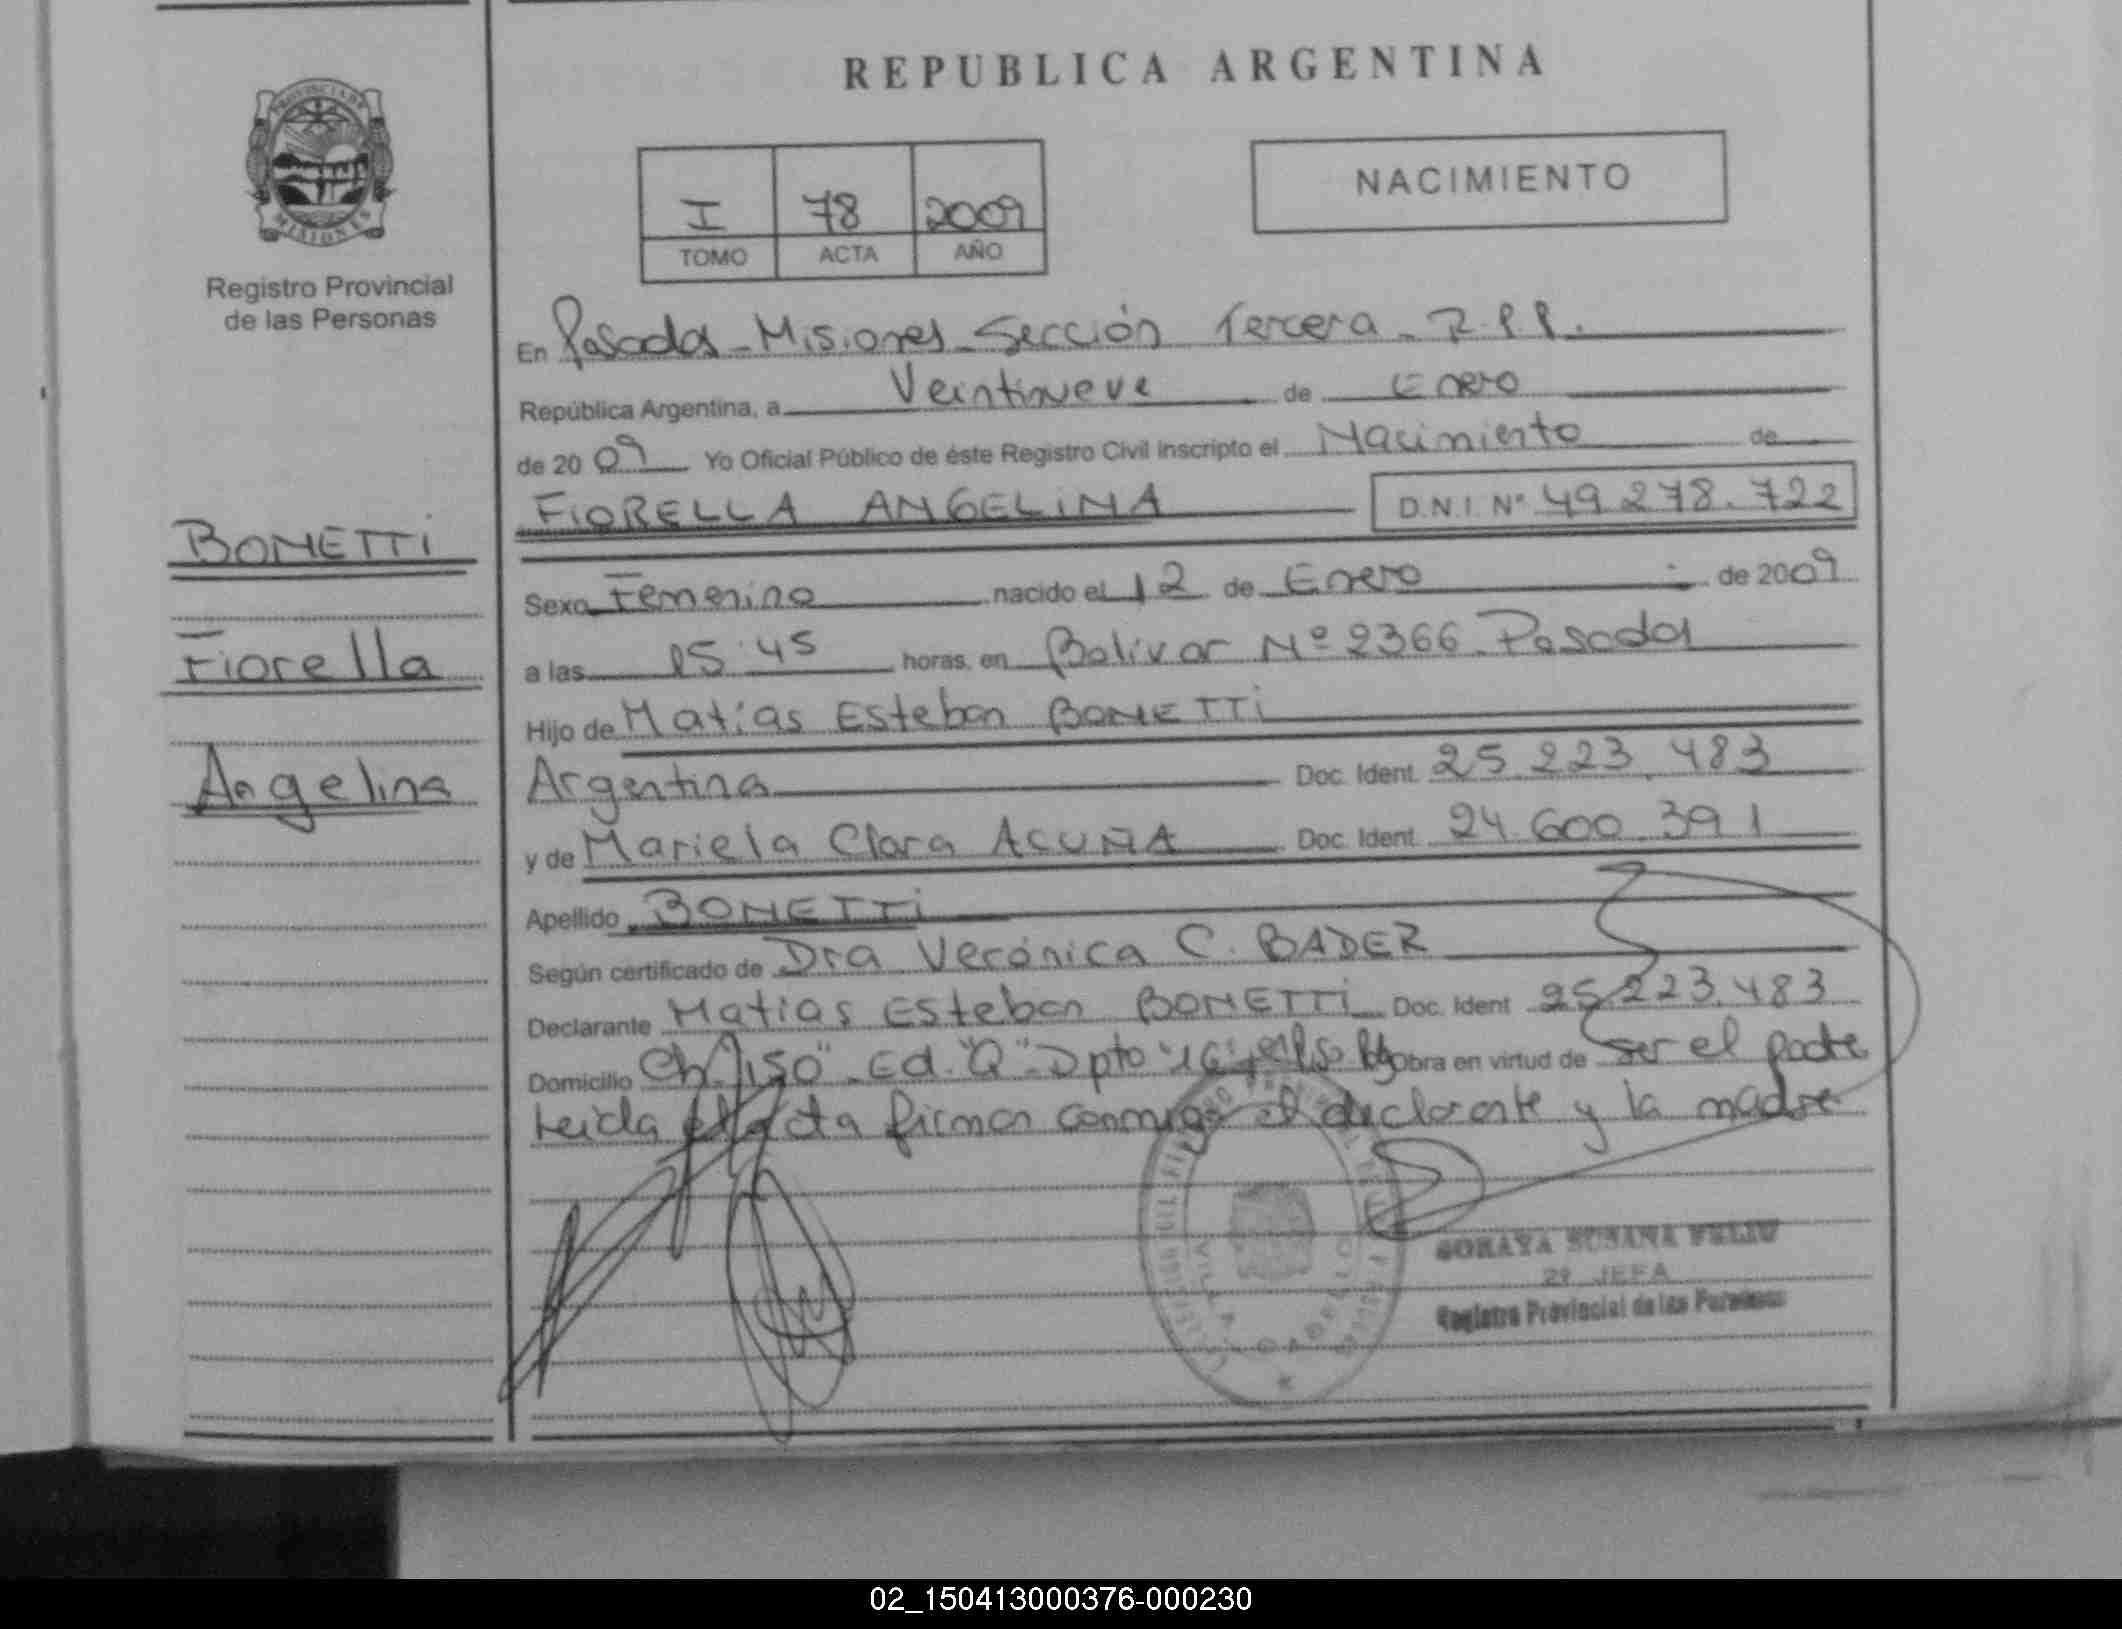 REPUBLICA ARGENTINA
PROVINCIA DE
MISIONES
Registro Provincial
de las Personas
I 78 2009
TOMO ACTA AÑO
NACIMIENTO
En Posadas - Misiones - Sección Tercera - R.P.P.
República Argentina, a Veintinueve de Enero
de 2009 Yo Oficial Público de éste Registro Civil inscripto el Nacimiento de
FIORELLA ANGELINA D.N.I. Nº 49.278.722
BONETTI
Fiorella
Angelina
Sexo Femenino nacido el 12 de Enero de 2009
a las 15:45 horas. en Bolivar Nº 2366 - Posadas
Hijo de Matías Esteban BONETTI
Argentina Doc. Ident. 25.223.483
y de Mariela Clara ACUÑA Doc. Ident. 24.600.391
Apellido BONETTI
Según certificado de Dra Verónica C. BADER
Declarante Matias Esteban BONETTI Doc. Ident 25.223.483
Domicilio Ch. 150" Ed. "Q" Dpto Obra en virtud de ser el padre
Leida el acta firman conmigo el declarante y la madre
SORAYA SUSANA FELIU
2º JEFA
Registro Provincial de las Personas
02_150413000376-000230